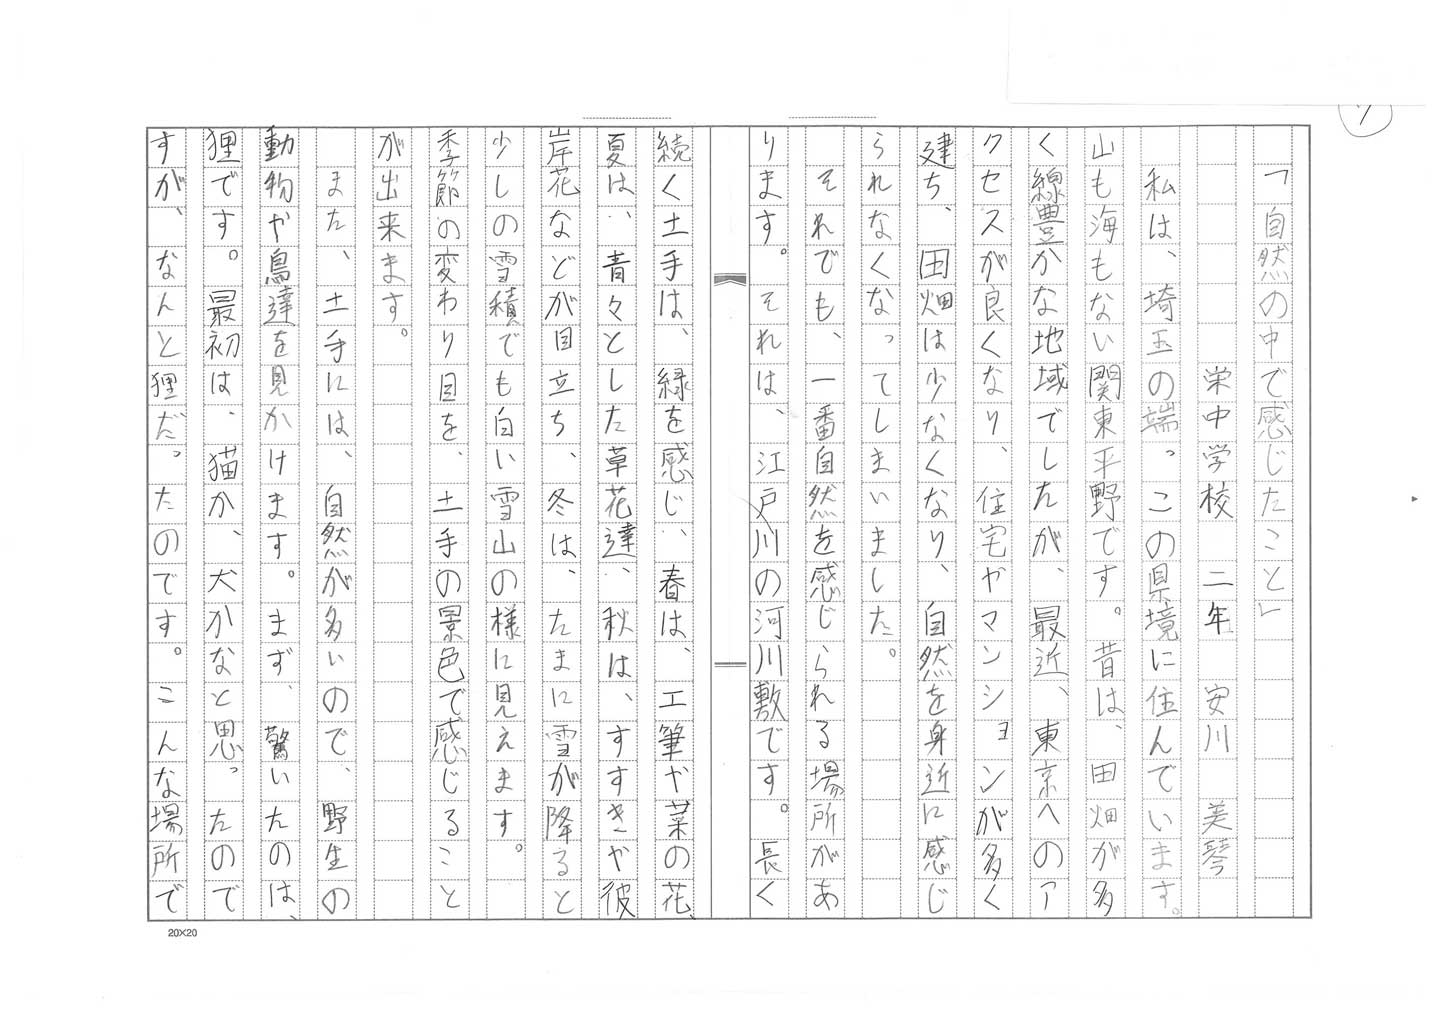 「自然の中で感じたこと」
栄中学校 二年 安川 美琴
私は、埼玉の端っこの県境に住んでいます。
山も海もない関東平野です。昔は、田畑が多
く線豊かな地域でしたが、最近、東京へのア
クセスが良くなり、住宅やマンションが多く
建ち、田畑は少なくなり、自然を身近に感じ
られなくなってしまいました。
それでも、一番自然を感じられる場所があ
ります。それは、江戸川の河川敷です。長く
続く土手は、緑を感じ、春は、工筆や菜の花、
夏は、青々とした草花達、秋は、すすきや彼
岸花などが目立ち、冬は、たまに雪が降ると
少しの雪積でも白い雪山の様に見えます。
季節の変わり目を、土手の景色で感じること
が出来ます。
また、土手には、自然が多いので、野生の
動物や鳥達を見かけます。まず、驚いたのは、
狸です。最初は、猫か、犬かなと思ったので
すが、なんと狸だったのです。こんな場所で
20×20